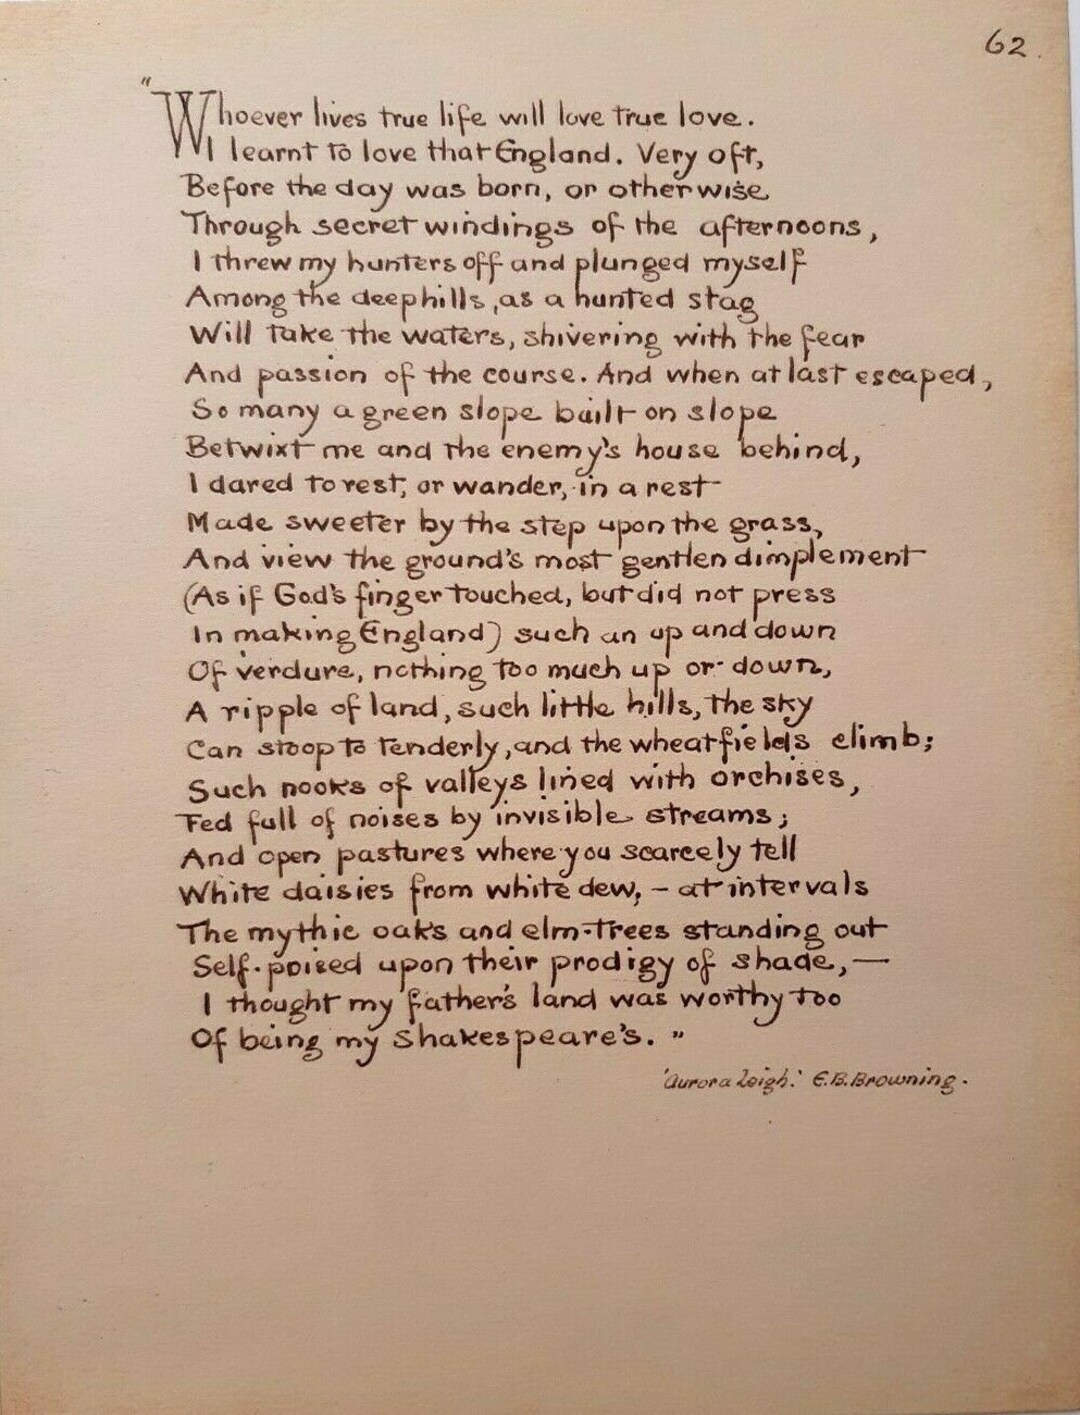 62.
"Whoever lives true life will love true love.
I learnt to love that England. Very oft,
Before the day was born, or otherwise
Through secret windings of the afternoons,
I threw my hunters off and plunged myself
Among the deep hills, as a hunted stag
Will take the waters, shivering with the fear
And passion of the course. And when at last escaped,
So many a green slope built on slope
Betwixt me and the enemy's house behind,
I dared to rest, or wander, in a rest
Made sweeter by the step upon the grass,
And view the ground's most gentlen dimplement
(As if God's finger touched, but did not press
In making England) such an up and down
Of verdure, nothing too much up or down,
A ripple of land, such little hills, the sky
Can stoop to tenderly, and the wheatfields climb;
Such nooks of valleys lined with orchises,
Fed full of noises by invisible streams;
And open pastures where you scarcely tell
White daisies from white dew, - at intervals
The mythic oaks and elm-trees standing out
Self-poised upon their prodigy of shade, —
I thought my father's land was worthy too
Of being my Shakespeare's."
'Aurora Leigh.' E.B.Browning.